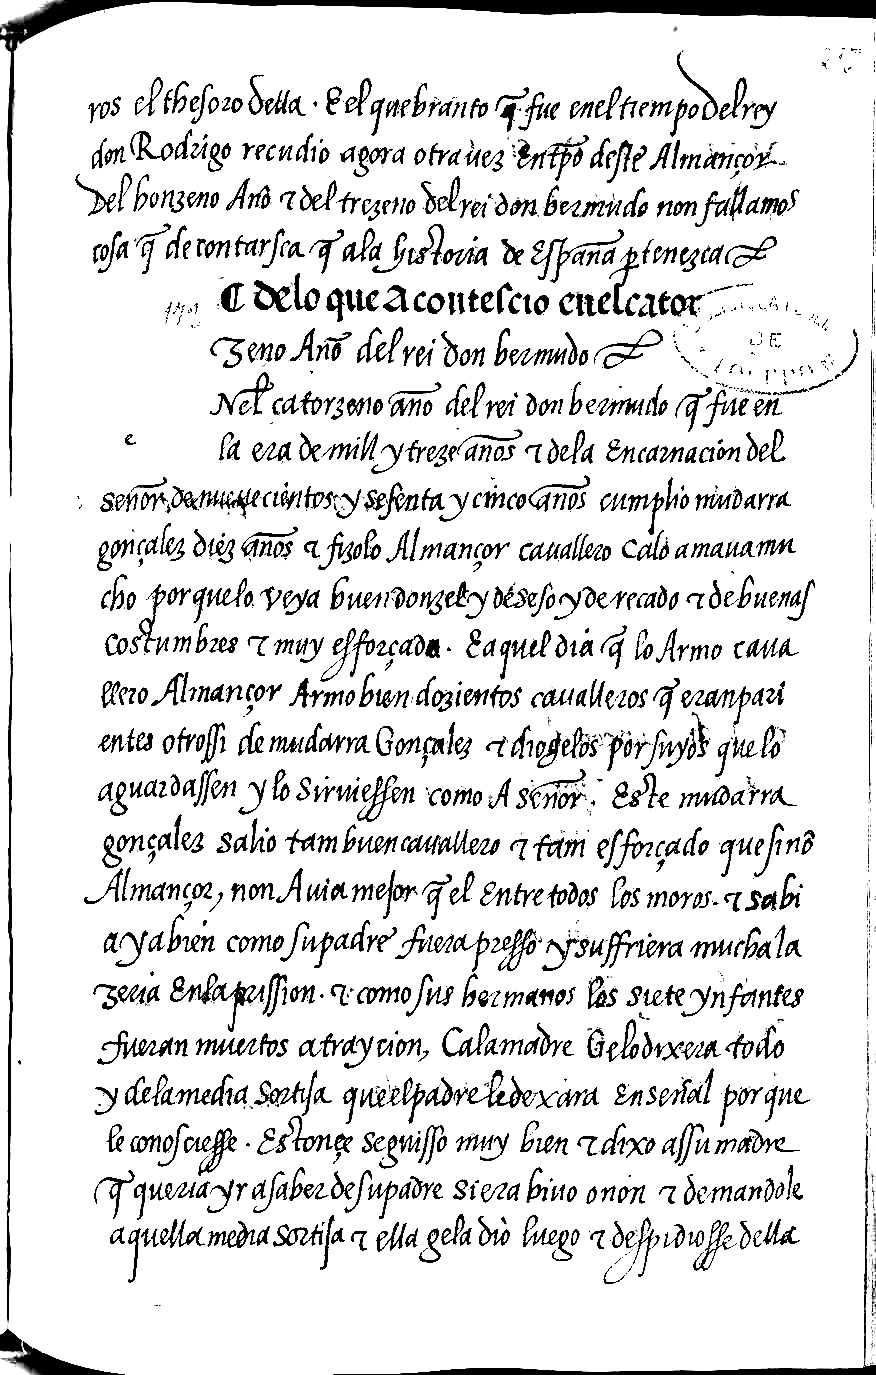 ros el thesoro della . E el quebranto q̃ fue enel tiempo del rey
don Rodrigo recudio agora otra uez Entp̃o deste Almançor
Del honzeno Año ⁊ del trezeno del rei don bermudo non fallamos
cosa q̃ de contar sea q̃ ala historia de España ꝑtenezca
¶ Delo que Acontescio enel cator
zeno Año del rei don bermudo
Nel catorzeno año del rei don bermudo q̃ fue en
e
la era de mill y treze años ⁊ dela Encarnacion del
señor de nuevecientos y sesenta y cinco años cumplio mudarra
gonçalez diez años ⁊ fizolo Almançor cauallero Calo amaua mu
cho porquelo veya buen donzel y de seso y de recado ⁊ de buenas
costumbres ⁊ muy esforçado . Ea quel dia q̃ lo Armo caua
llero Almançor Armo bien dozientos caualleros q̃ eran pari
entes otrossi de mudarra Gonçalez ⁊ diogelos por suyos que lo
aguardassen y lo siruiessen como A señor . Este mudarra
gonçalez salio tam buen cauallero ⁊ tam esforçado que sinõ
Almançor, non Auia mejor q̃ el Entre todos los moros . ⁊ sabi
a ya bien como su padre fuera presso y suffriera mucha la
zeria Enla prission . ⁊ como sus hermanos los siete ynfantes
fueran muertos a traycion, Cala madre Gelo dixera todo
y dela media sortija que el padre le dexara En señal por que
le conosciesse . Estonçe seguisso muy bien ⁊ dixo assu madre
q̃ queria yr a saber de su padre si era biuo o non ⁊ demandole
aquella media sortija ⁊ ella gela dio luego ⁊ despidiosse della